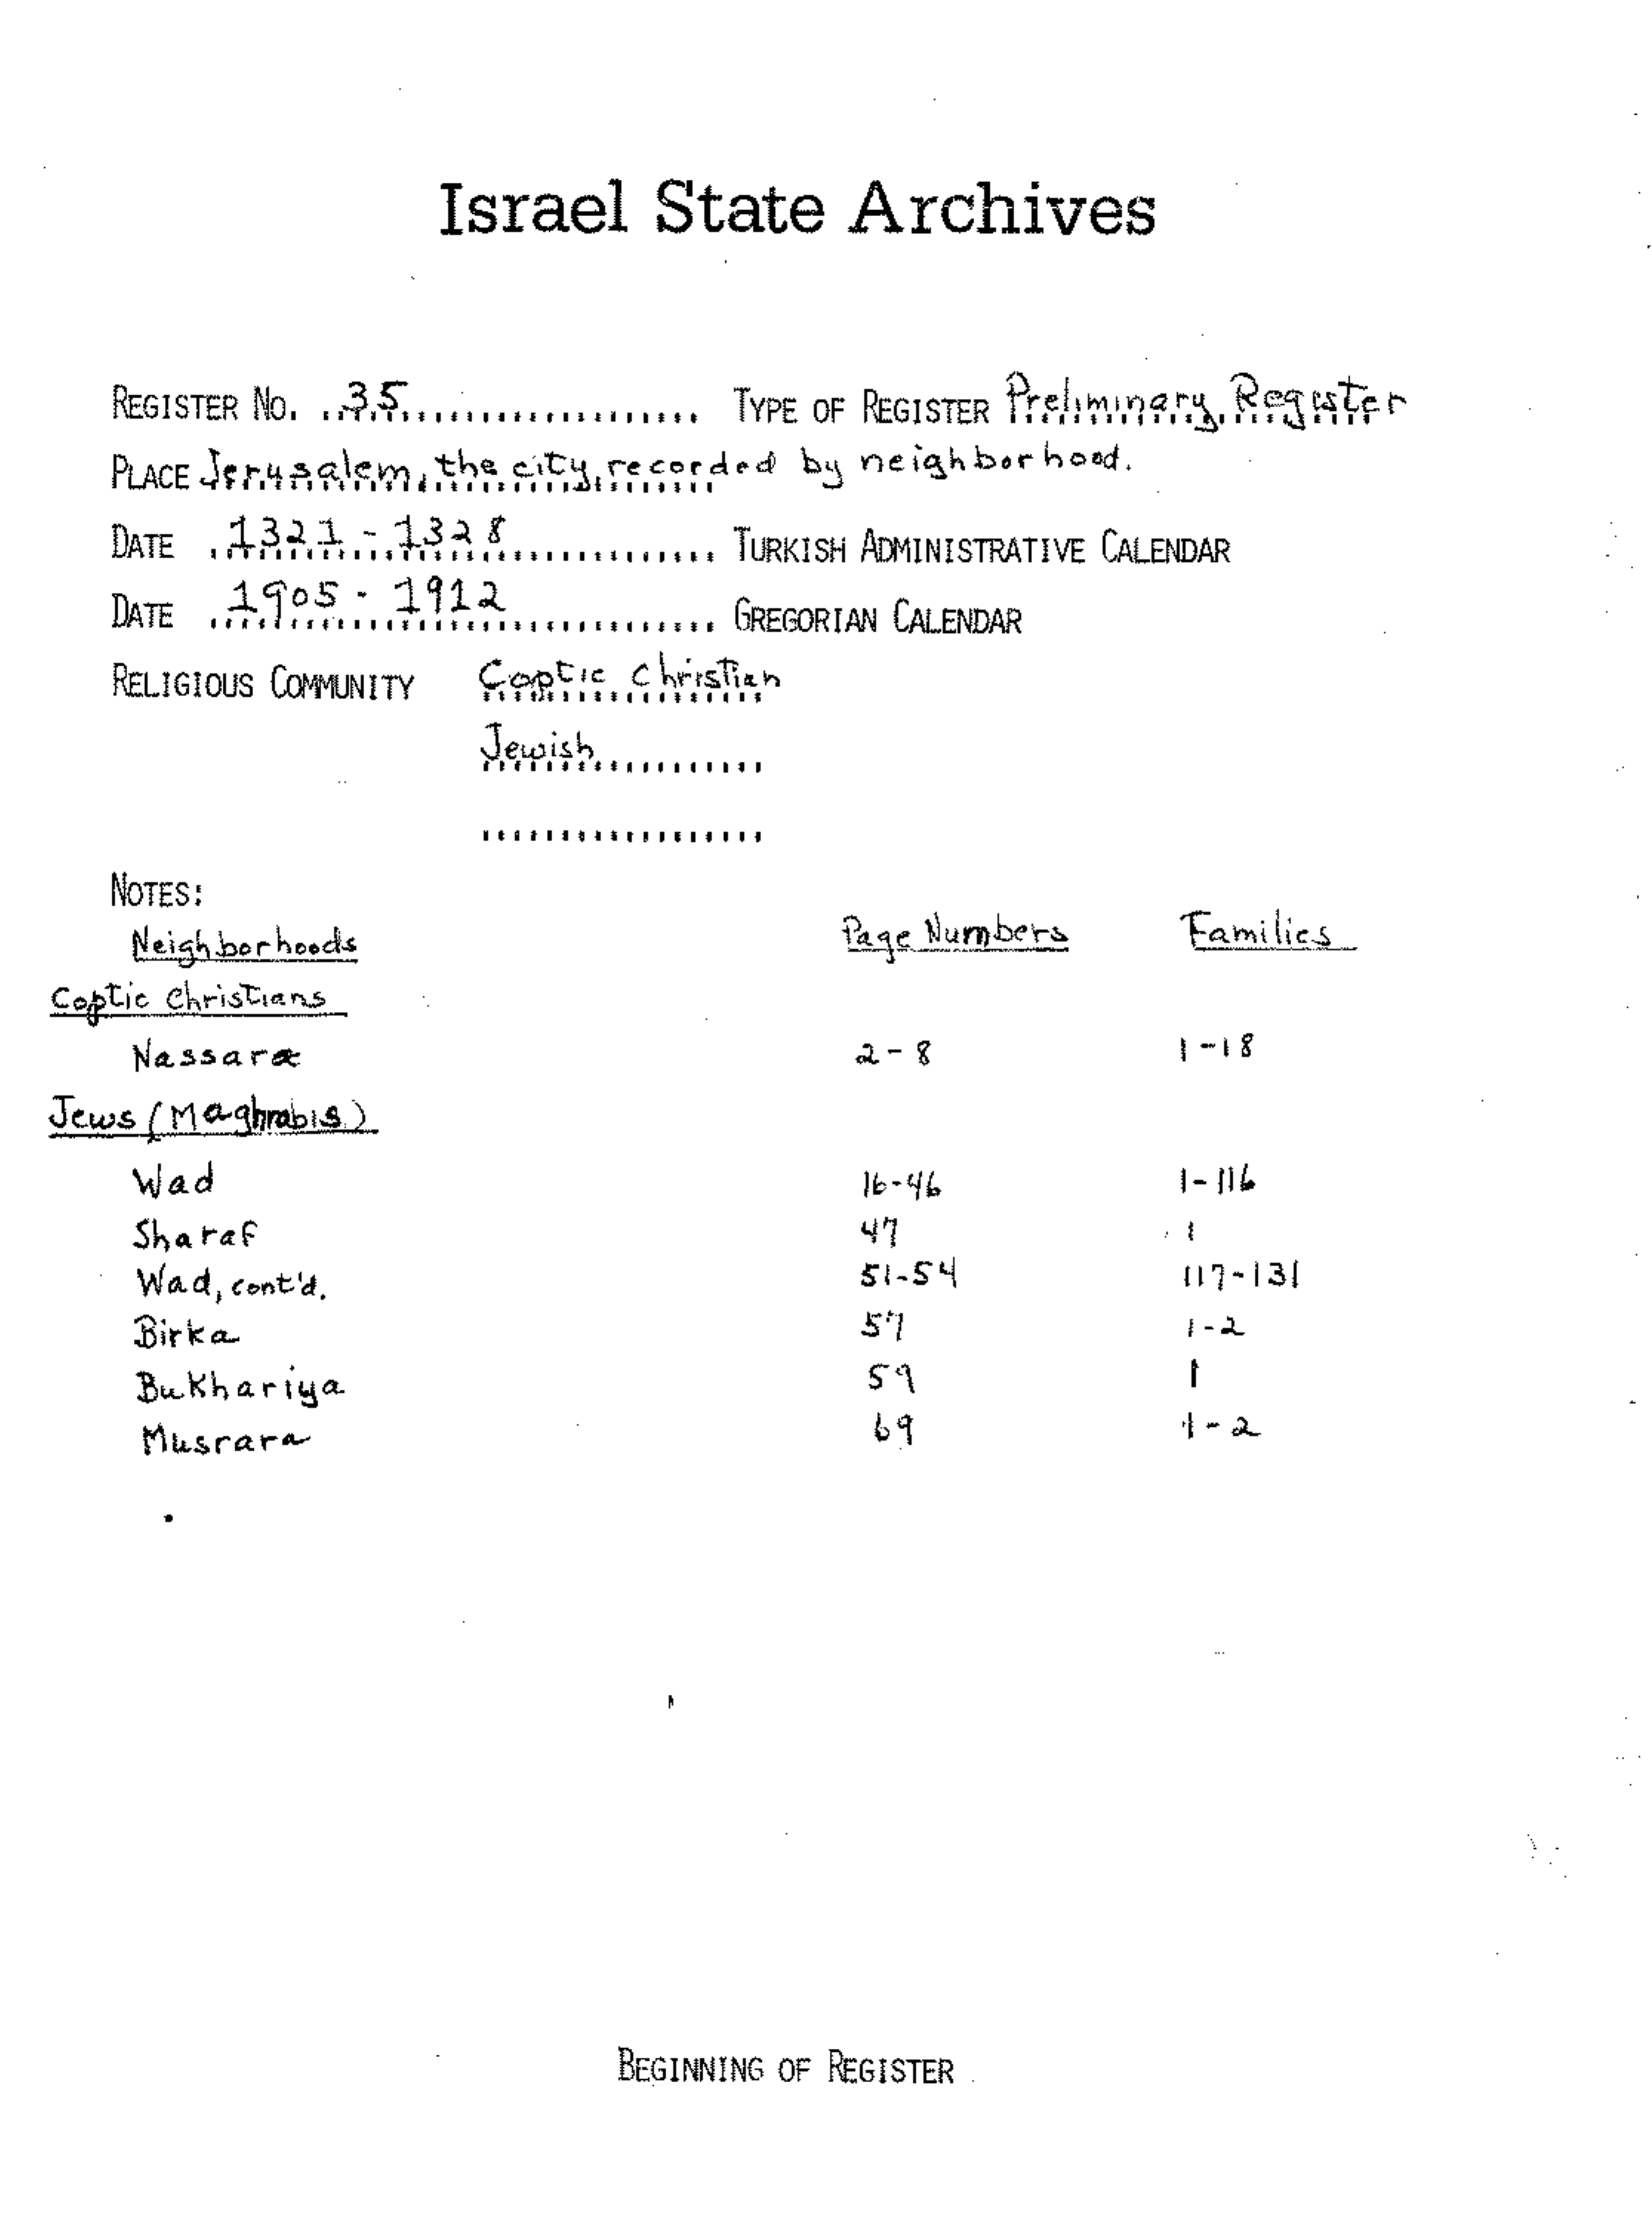 Israel State Archives
REGISTER NO. 35 TYPE OF REGISTER Preliminary Register
PLACE Jerusalem, the city, recorded by neighborhood.
DATE 1321 - 1328 TURKISH ADMINISTRATIVE CALENDAR
DATE 1905 - 1912 GREGORIAN CALENDAR
RELIGIOUS COMMUNITY Coptic Christian
Jewish
NOTES:
Neighborhoods Page Numbers Families
Coptic Christians
Nassara 2-8 1-18
Jews (Maghrabis)
Wad 16-46 1-116
Sharaf 47 1
Wad, cont'd. 51-54 117-131
Birka 57 1-2
Bukhariya 59 1
Musrara 69 1-2
BEGINNING OF REGISTER